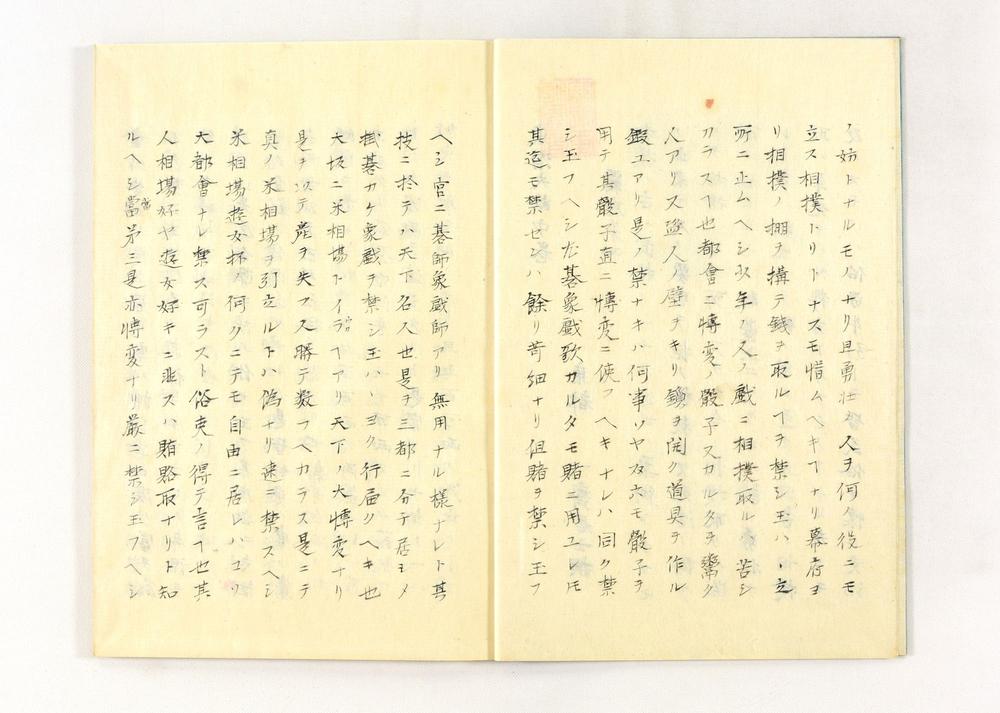 ノ妨トナルモノナリ且勇壮ノ人ヲ何ノ役ニモ
立ス相撲トリトナスモ惜ムヘキヿナリ幕府ヨ
リ相撲ノ棚ヲ搆テ銭ヲ取ルヿヲ禁シ玉ハヽ立
所ニ止ムヘシ少年ノ人ノ戯ニ相撲取ルハ苦シ
カラスヿ也都會ニ博変ノ骰子又カルタヲ鬻ク
人アリ又盗人ノ壁ヲキリ鎖ヲ開ク道具ヲ作ル
鍜ユアリ是ノ禁ナキハ何事ソヤ双六モ骰子ヲ
用テ其骰子直ニ博変ニ使フヘキナレハ同ク禁
シ玉フヘシ尤碁象戯歌カルタモ賭ニ用ユレ𪜈
其迄モ禁センハ餘リ苛細ナリ但賭ヲ禁シ玉フ
ヘシ官ニ碁師象戯師アリ無用ナル様ナレト其
技ニ於テハ天下名人也是ヲ三都ニ分テ居ヨメ
掛碁カケ象戯ヲ禁シ玉ハヽヨク行届クヘキ也
大坂ニ米相場トイラヿアリ天下ノ大博変ナリ
是ヲ以テ産ヲ失フ人勝テ数フヘカラス是ニテ
真ノ米相場ヲ引立ルトハ偽ナリ速ニ禁スヘシ
米相場遊女抔ノ何クニテモ自由ニ居レハコソ
大都會ナレ禁ス可ラスト俗吏ノ得テ言ヿ也其
人相場好ヤ遊女好キニ非スハ賄賂取ナリト知
ルヘシ當第三是亦博変ナリ嚴ニ禁シ玉フヘシ